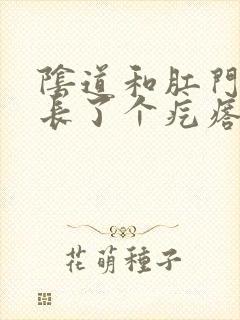 陰道和肛門
長了个疙瘩
花萌種子